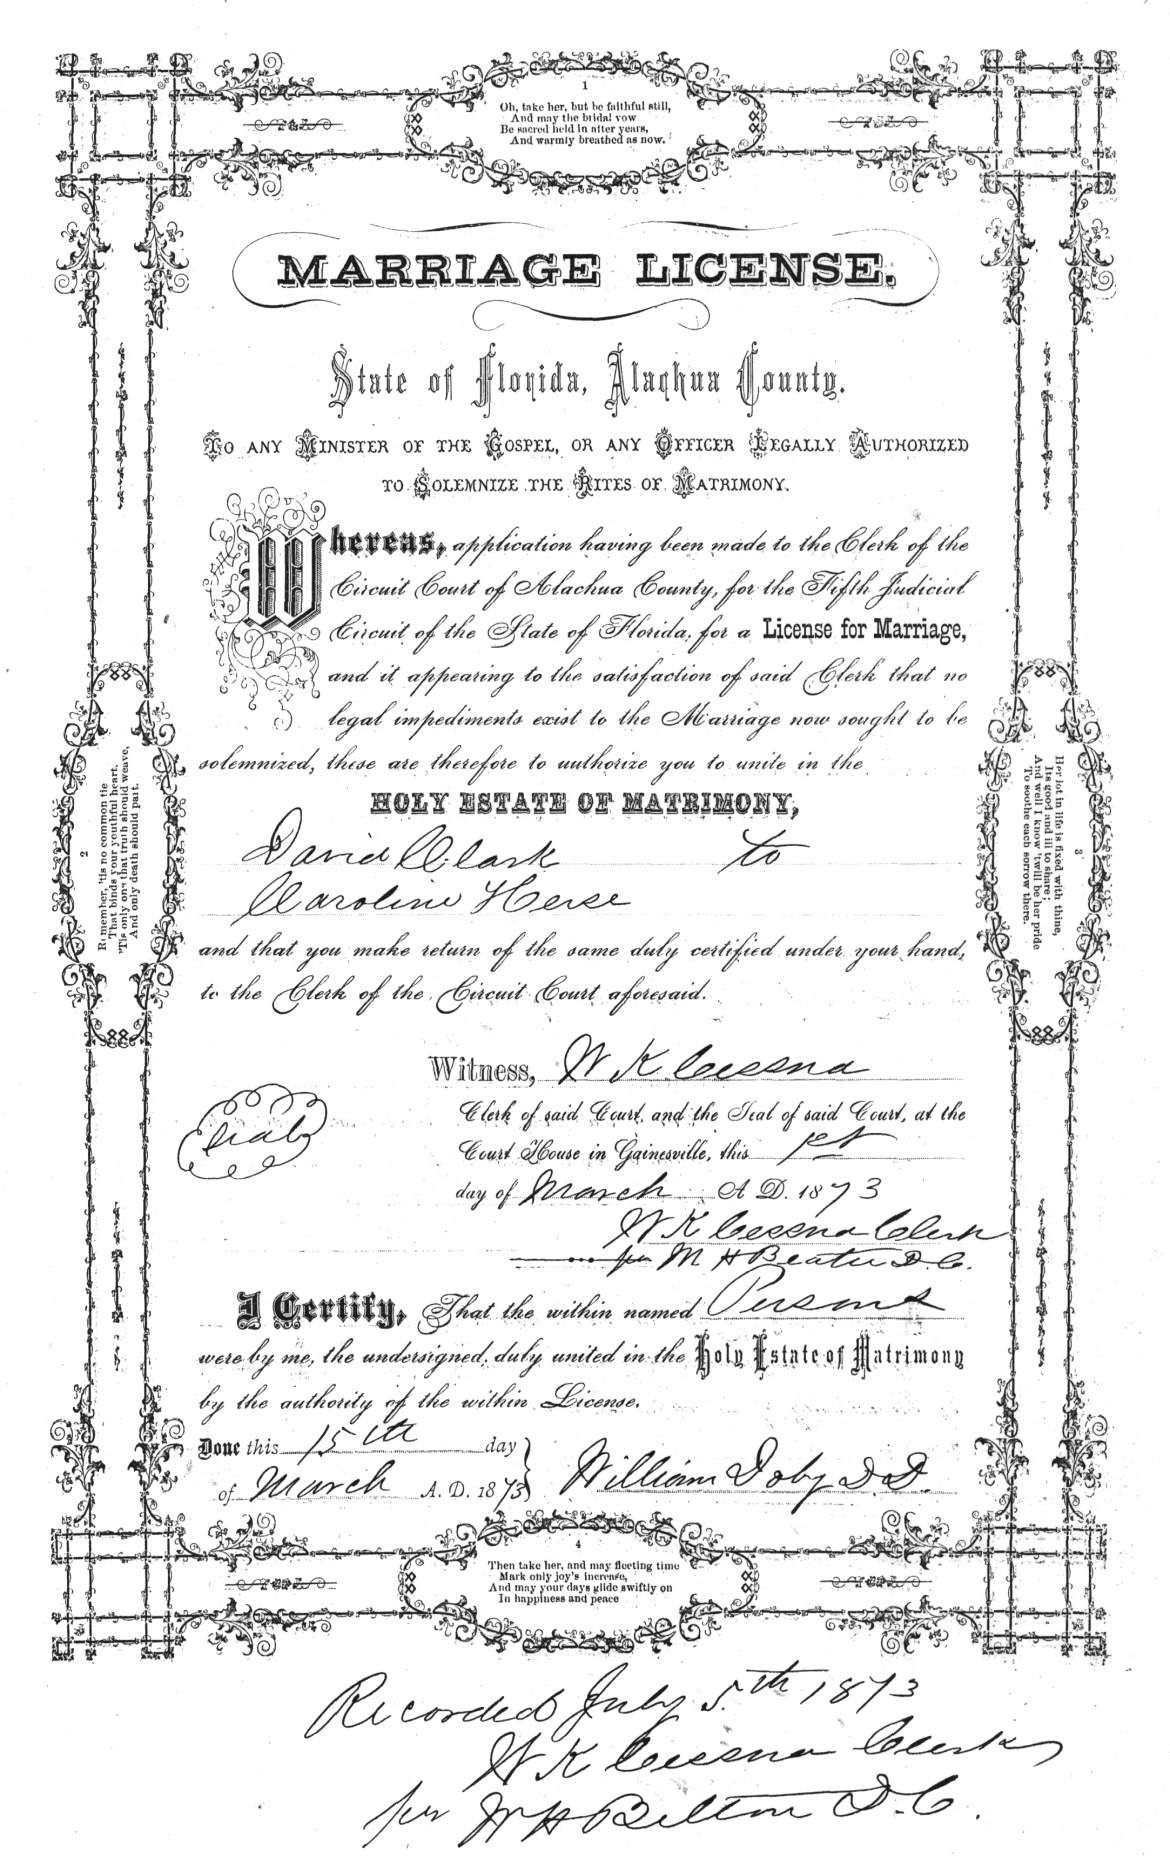 1
Oh, take her, but be faithful still,
And may the bridal vow
Be sacred held in after years,
And warmly breathed as now.
MARRIAGE LICENSE.
State of Florida, Alachua County.
TO ANY MINISTER OF THE GOSPEL, OR ANY OFFICER LEGALLY AUTHORIZED
TO SOLEMNIZE THE RITES OF MATRIMONY.
Whereas, application having been made to the Clerk of the
Circuit Court of Alachua County, for the Fifth Judicial
Circuit of the State of Florida, for a License for Marriage,
and it appearing to the satisfaction of said Clerk that no
legal impediments exist to the Marriage now sought to be
solemnized, these are therefore to authorize you to unite in the
HOLY ESTATE OF MATRIMONY,
David Clark to
Caroline
and that you make return of the same duly certified under your hand,
to the Clerk of the Circuit Court aforesaid.
2
Remember, 'tis no common tie
That binds your youthful heart,
'Tis only one that truth should weave,
And only death should part.
3
Her lot in life is fixed with thine,
Its good and ill to share;
And well I know 'twill be her pride
To soothe each sorrow there.
Witness, W K Cessna
Clerk of said Court, and the Seal of said Court, at the
Court House in Gainesville, this 1st
day of March A D. 1873
W K Cessna Clerk
per M H D. C.
I Certify, That the within named Persons
were by me, the undersigned, duly united in the Holy Estate of Matrimony
by the authority of the within License.
Done this 15th day
of March A. D. 1873
William Doby D. D.
4
Then take her, and may fleeting time
Mark only joy's increase,
And may your days glide swiftly on
In happiness and peace
Recorded July 5th 1873
W K Cessna Clerk
per W H Belton D. C.